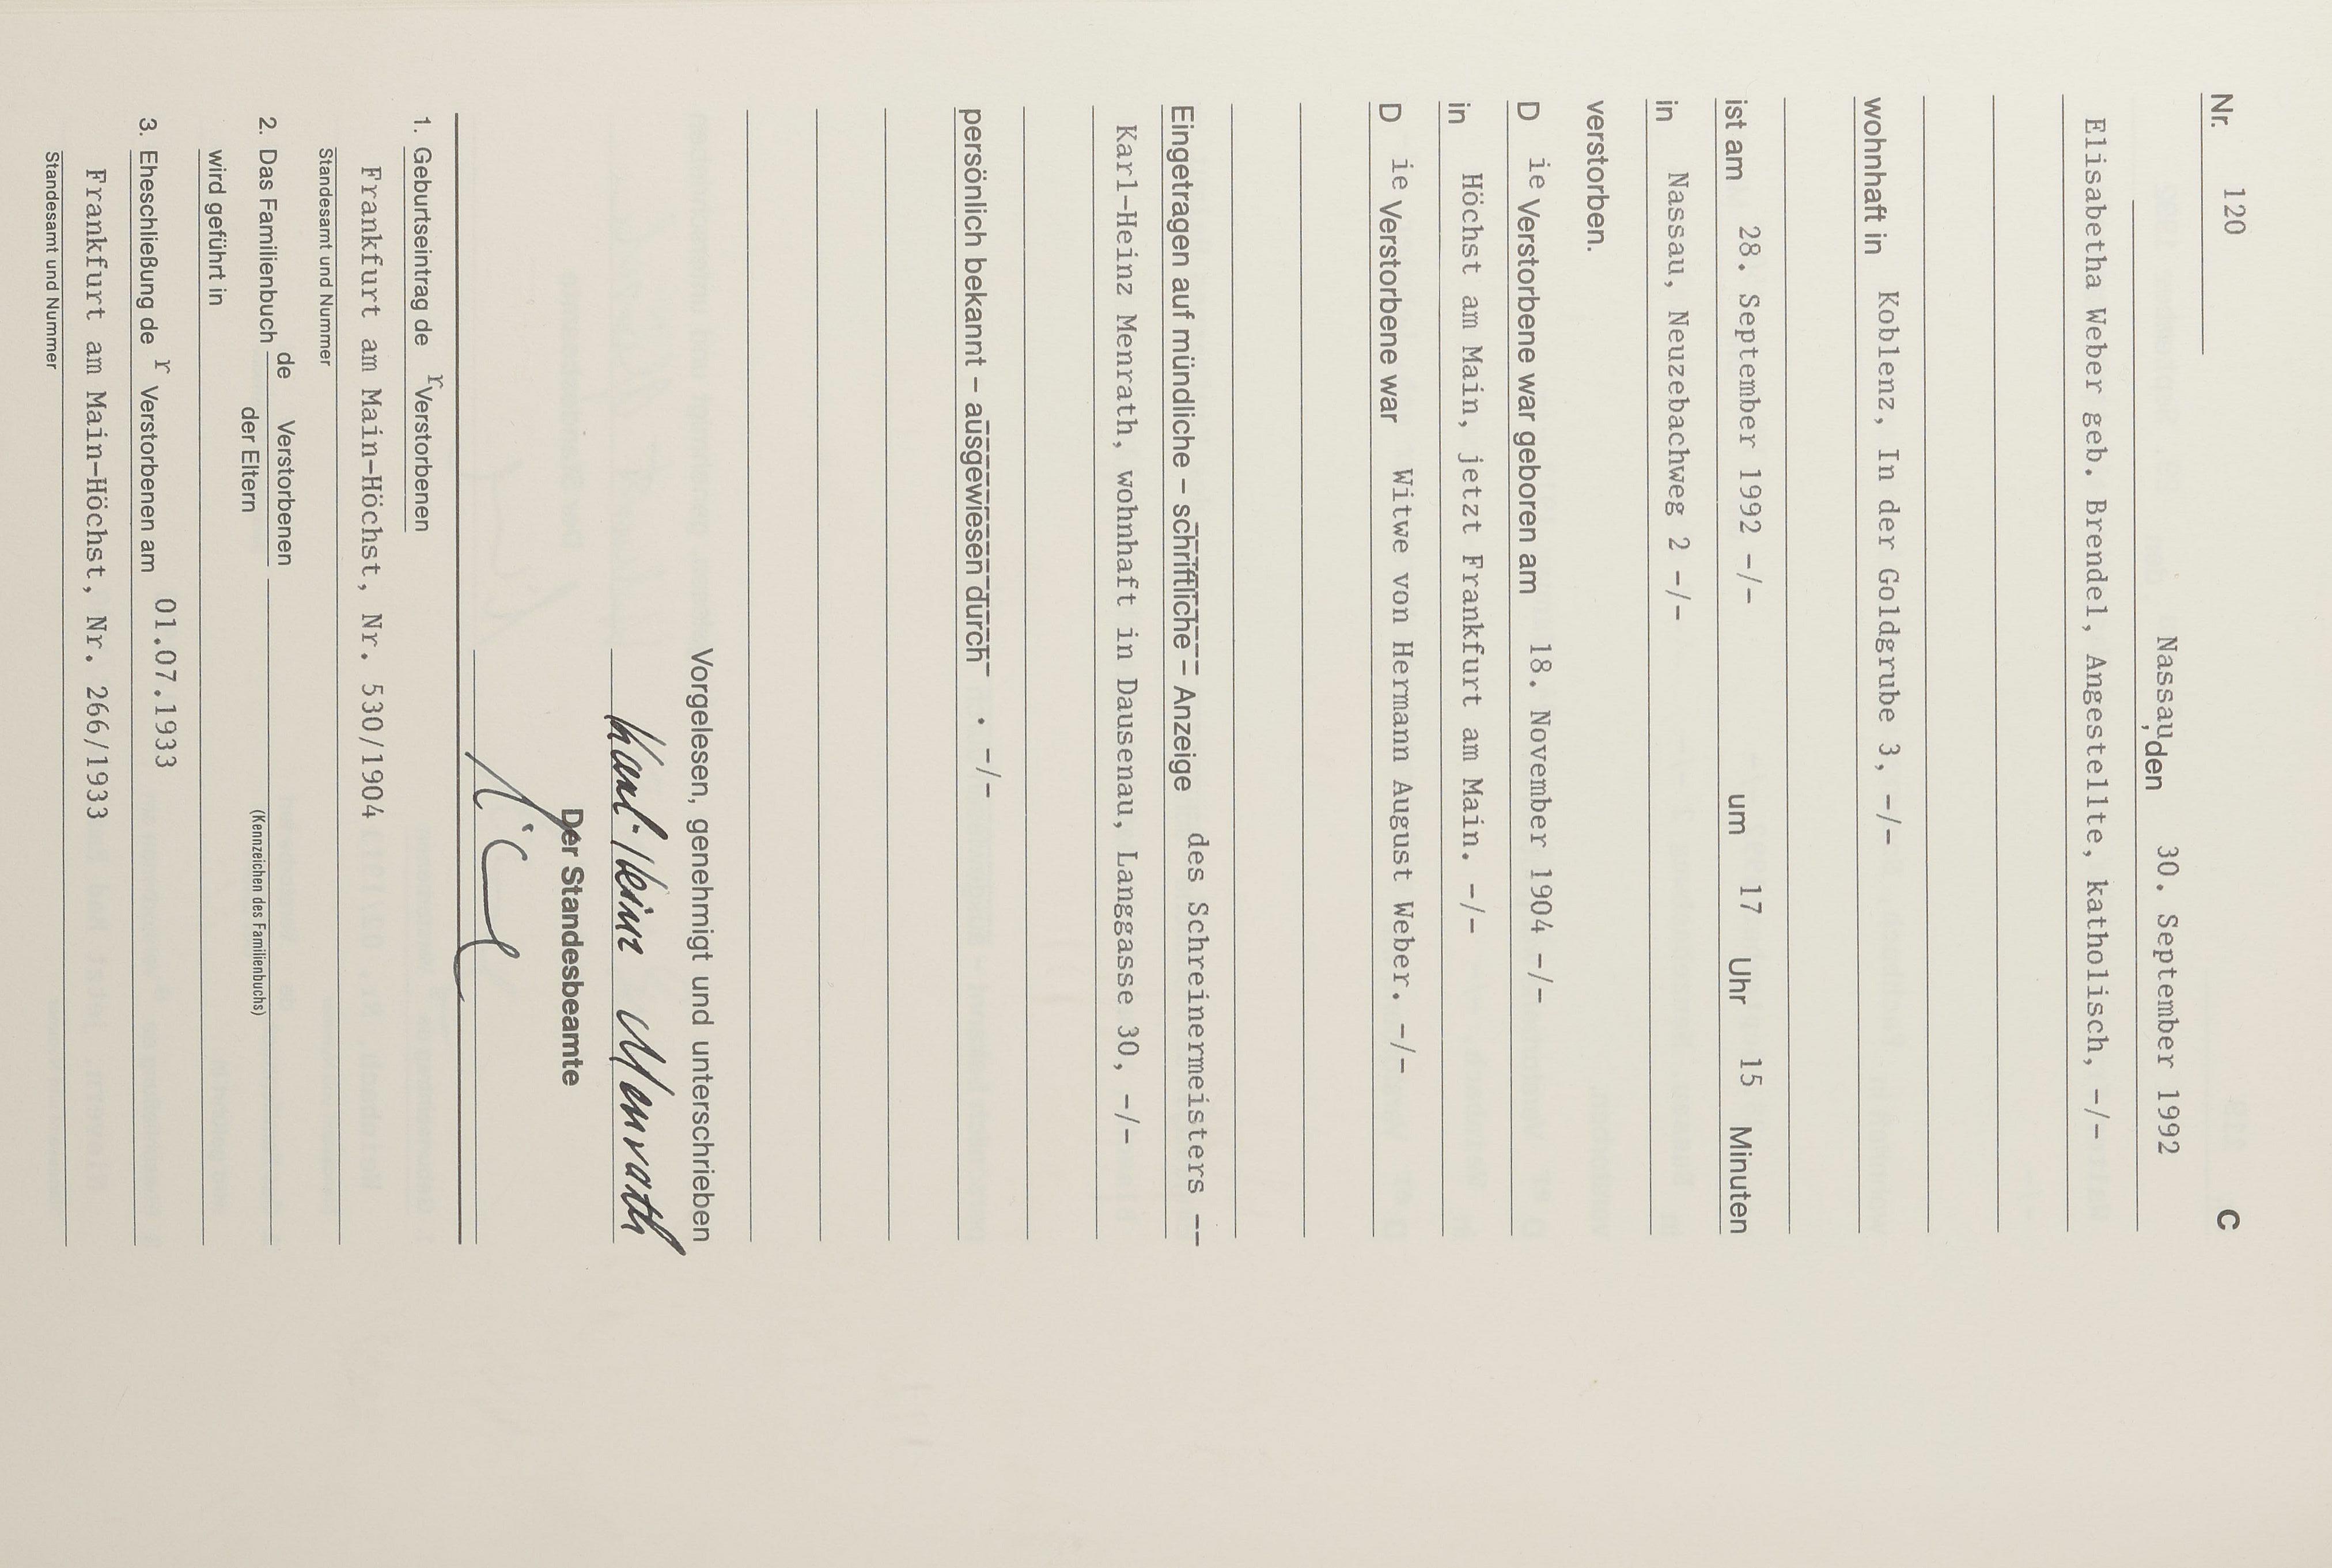 Nr. 120 C
Nassau, den 30. September 1992
Elisabetha Weber geb. Brendel, Angestellte, katholisch, -/-
wohnhaft in Koblenz, In der Goldgrube 3, -/-
ist am 28. September 1992 -/- um 17 Uhr 15 Minuten
in Nassau, Neuzebachweg 2 -/-
verstorben.
D ie Verstorbene war geboren am 18. November 1904 -/-
in Höchst am Main, jetzt Frankfurt am Main. -/-
D ie Verstorbene war Witwe von Hermann August Weber. -/-
Eingetragen auf mündliche – schriftliche – Anzeige des Schreinermeisters --
Karl-Heinz Menrath, wohnhaft in Dausenau, Langgasse 30, -/-
persönlich bekannt – ausgewiesen durch . -/-
Vorgelesen, genehmigt und unterschrieben
Karl-Heinz Menrath
Der Standesbeamte
1. Geburtseintrag de r Verstorbenen
Frankfurt am Main-Höchst, Nr. 530/1904
Standesamt und Nummer
2. Das Familienbuch de Verstorbenen
der Eltern
(Kennzeichen des Familienbuchs)
wird geführt in
3. Eheschließung de r Verstorbenen am 01.07.1933
Frankfurt am Main-Höchst, Nr. 266/1933
Standesamt und Nummer